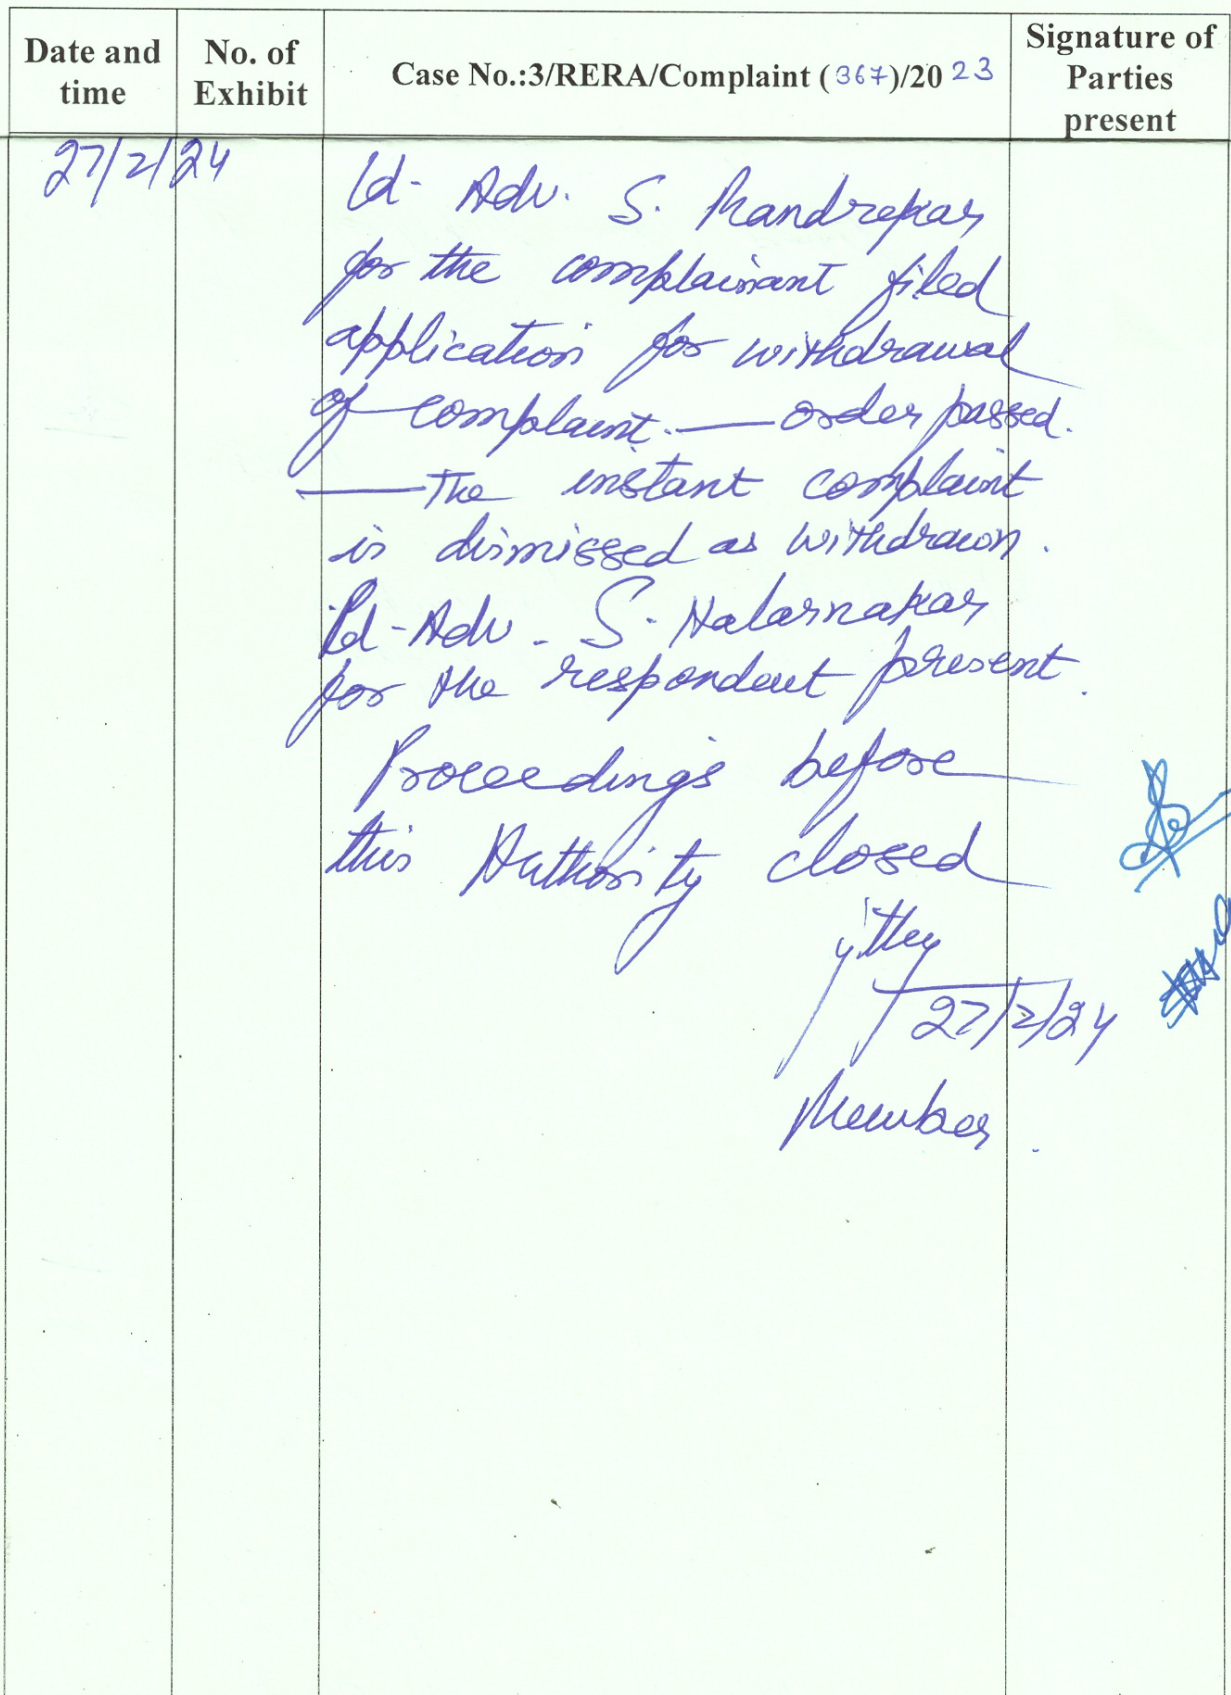 Date and time
No. of Exhibit
Case No.:3/RERA/Complaint (367)/2023
Signature of Parties present
27/2/24
Ld. Adv. S. Mandrekar
for the complainant filed
application for withdrawal
of complaint. — order passed.
— The instant complaint
is dismissed as withdrawn.
Ld. Adv. S. Halarnakar
for the respondent present.
Proceedings before
this Authority closed
27/2/24
Member.